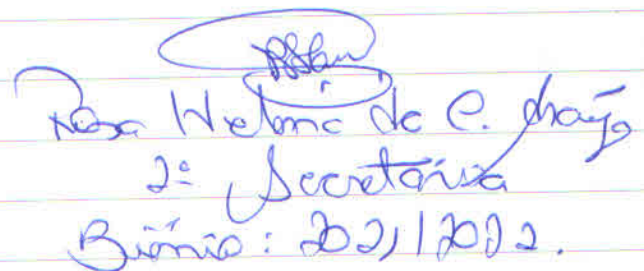 Rosa Helena de C. Araújo
2ª Secretária
Biênio: 2021/2022.